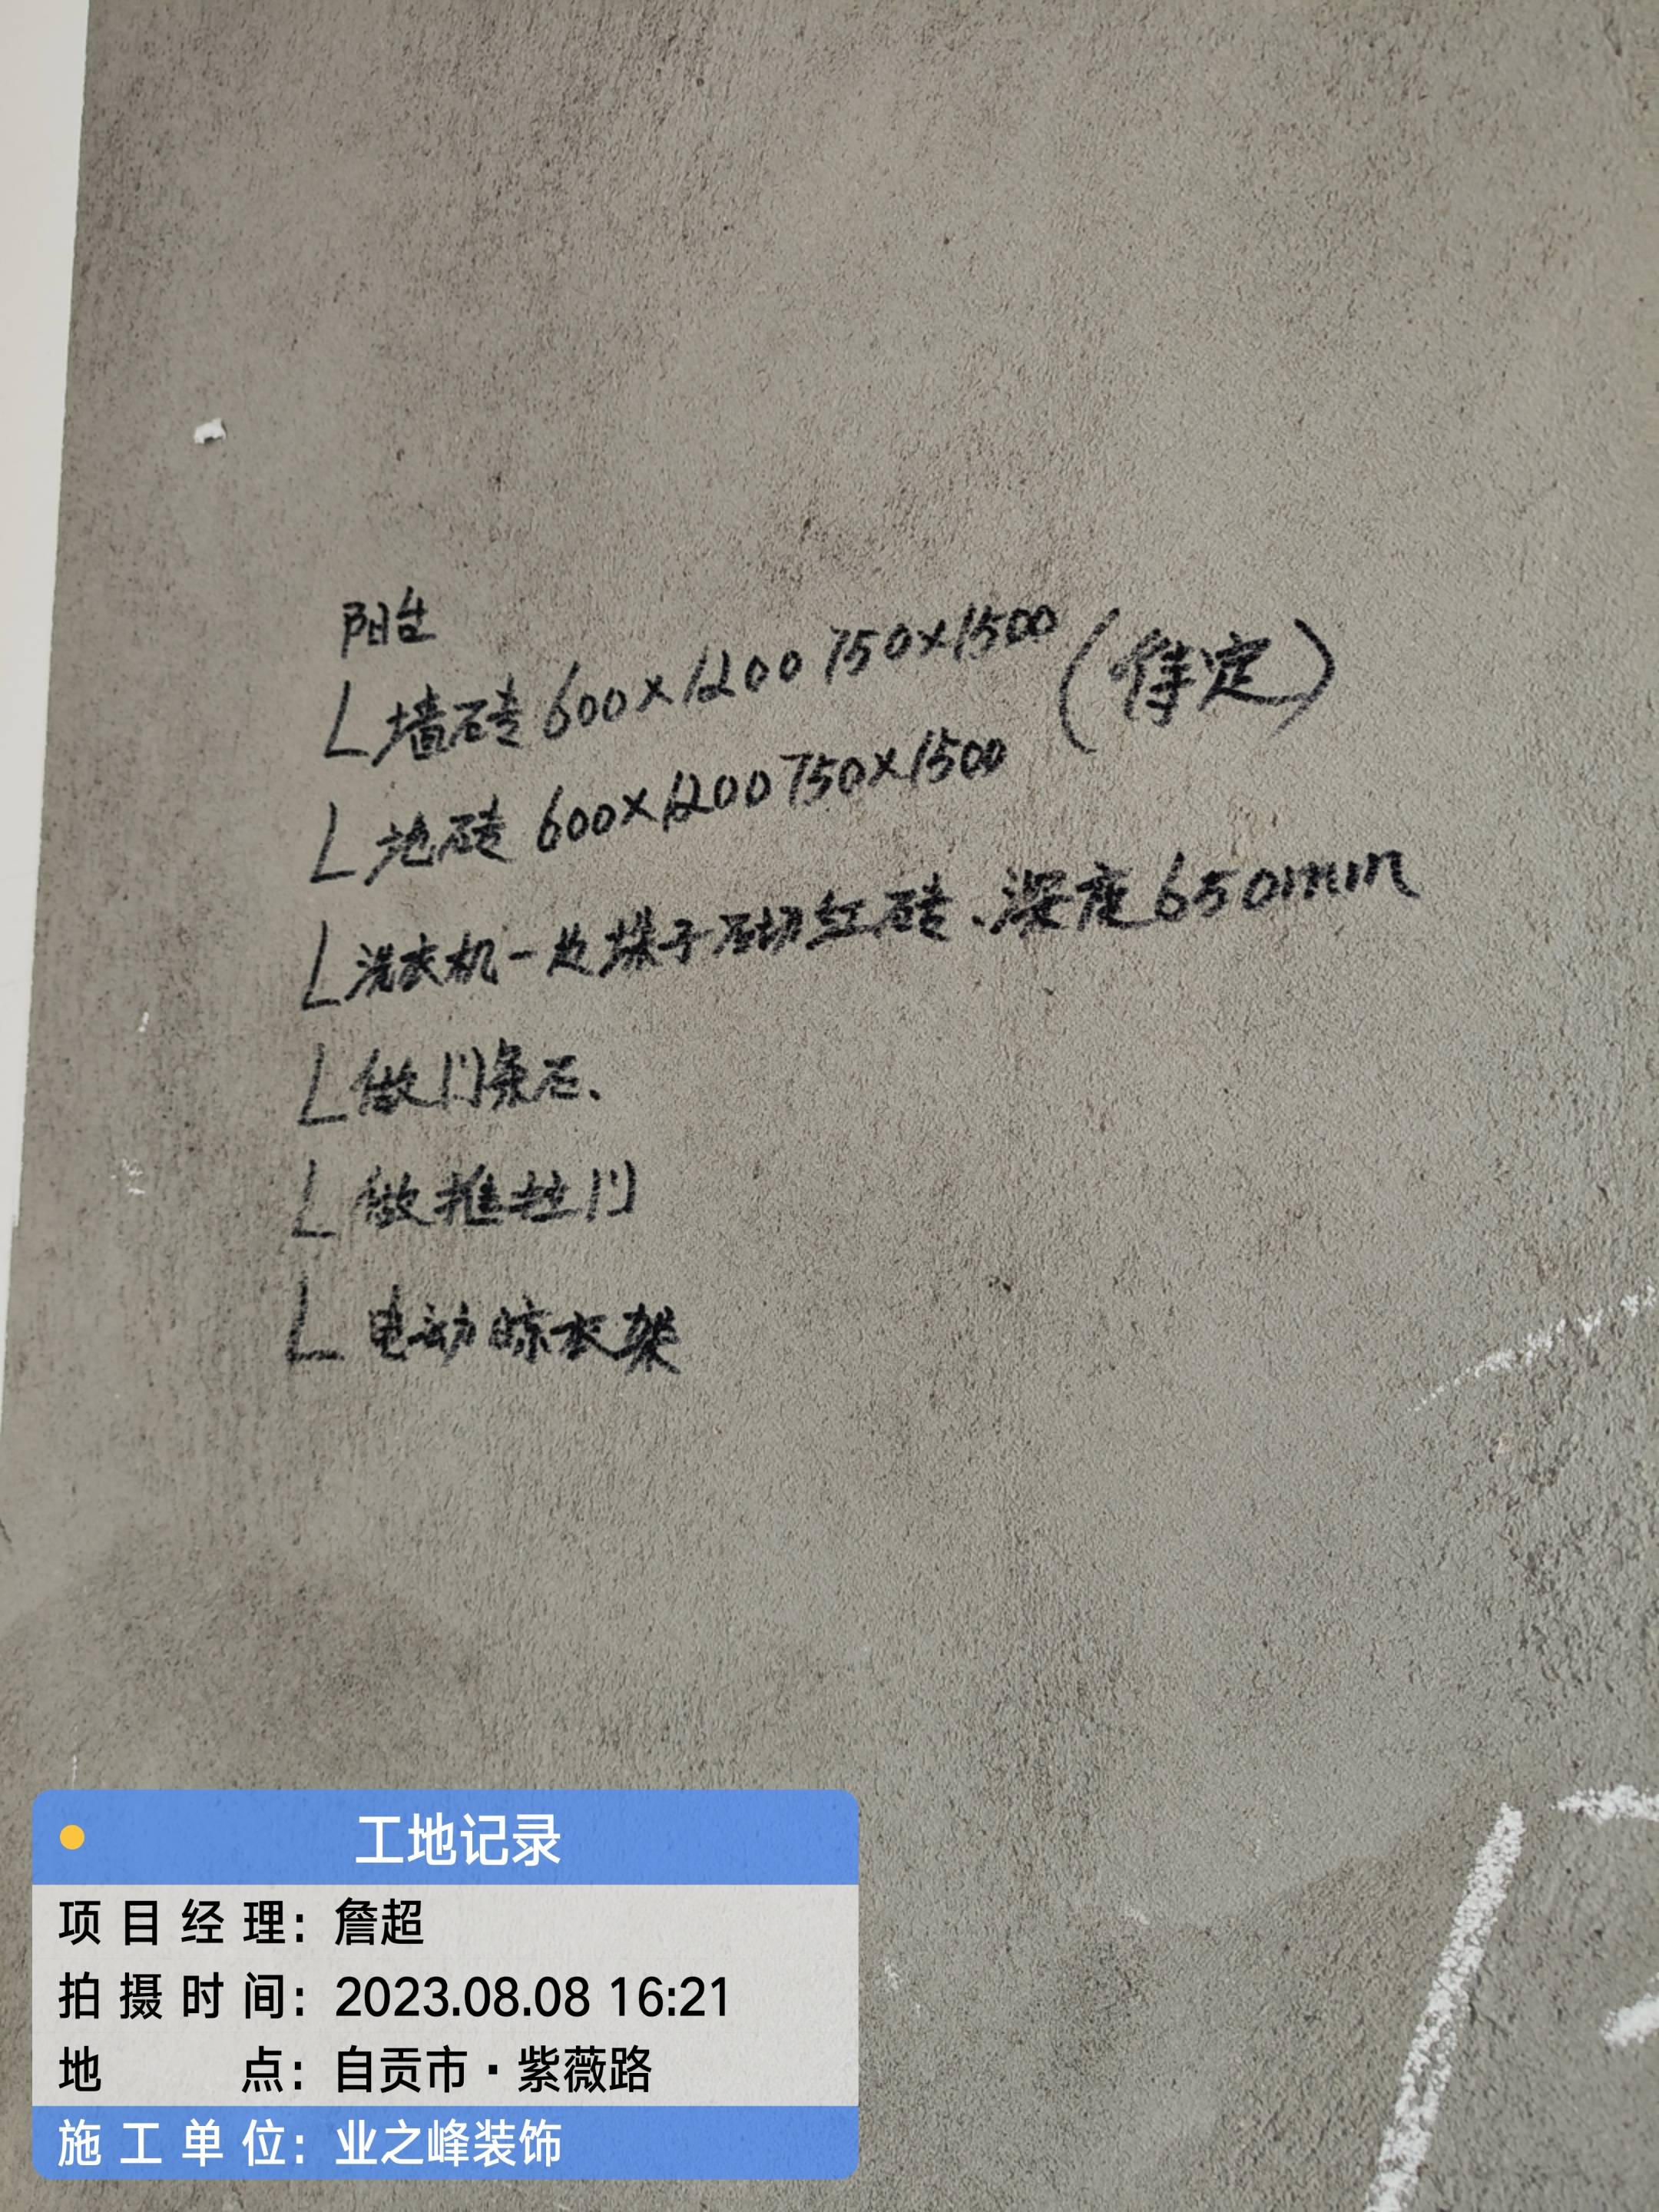 阳台
墙砖 600×1200 750×1500 (待定)
地砖 600×1200 750×1500
洗衣机一边垛子砌红砖、深度650mm
做门条石、
做推拉门
电动晾衣架
工地记录
项目经理：詹超
拍摄时间：2023.08.08 16:21
地点：自贡市·紫薇路
施工单位：业之峰装饰